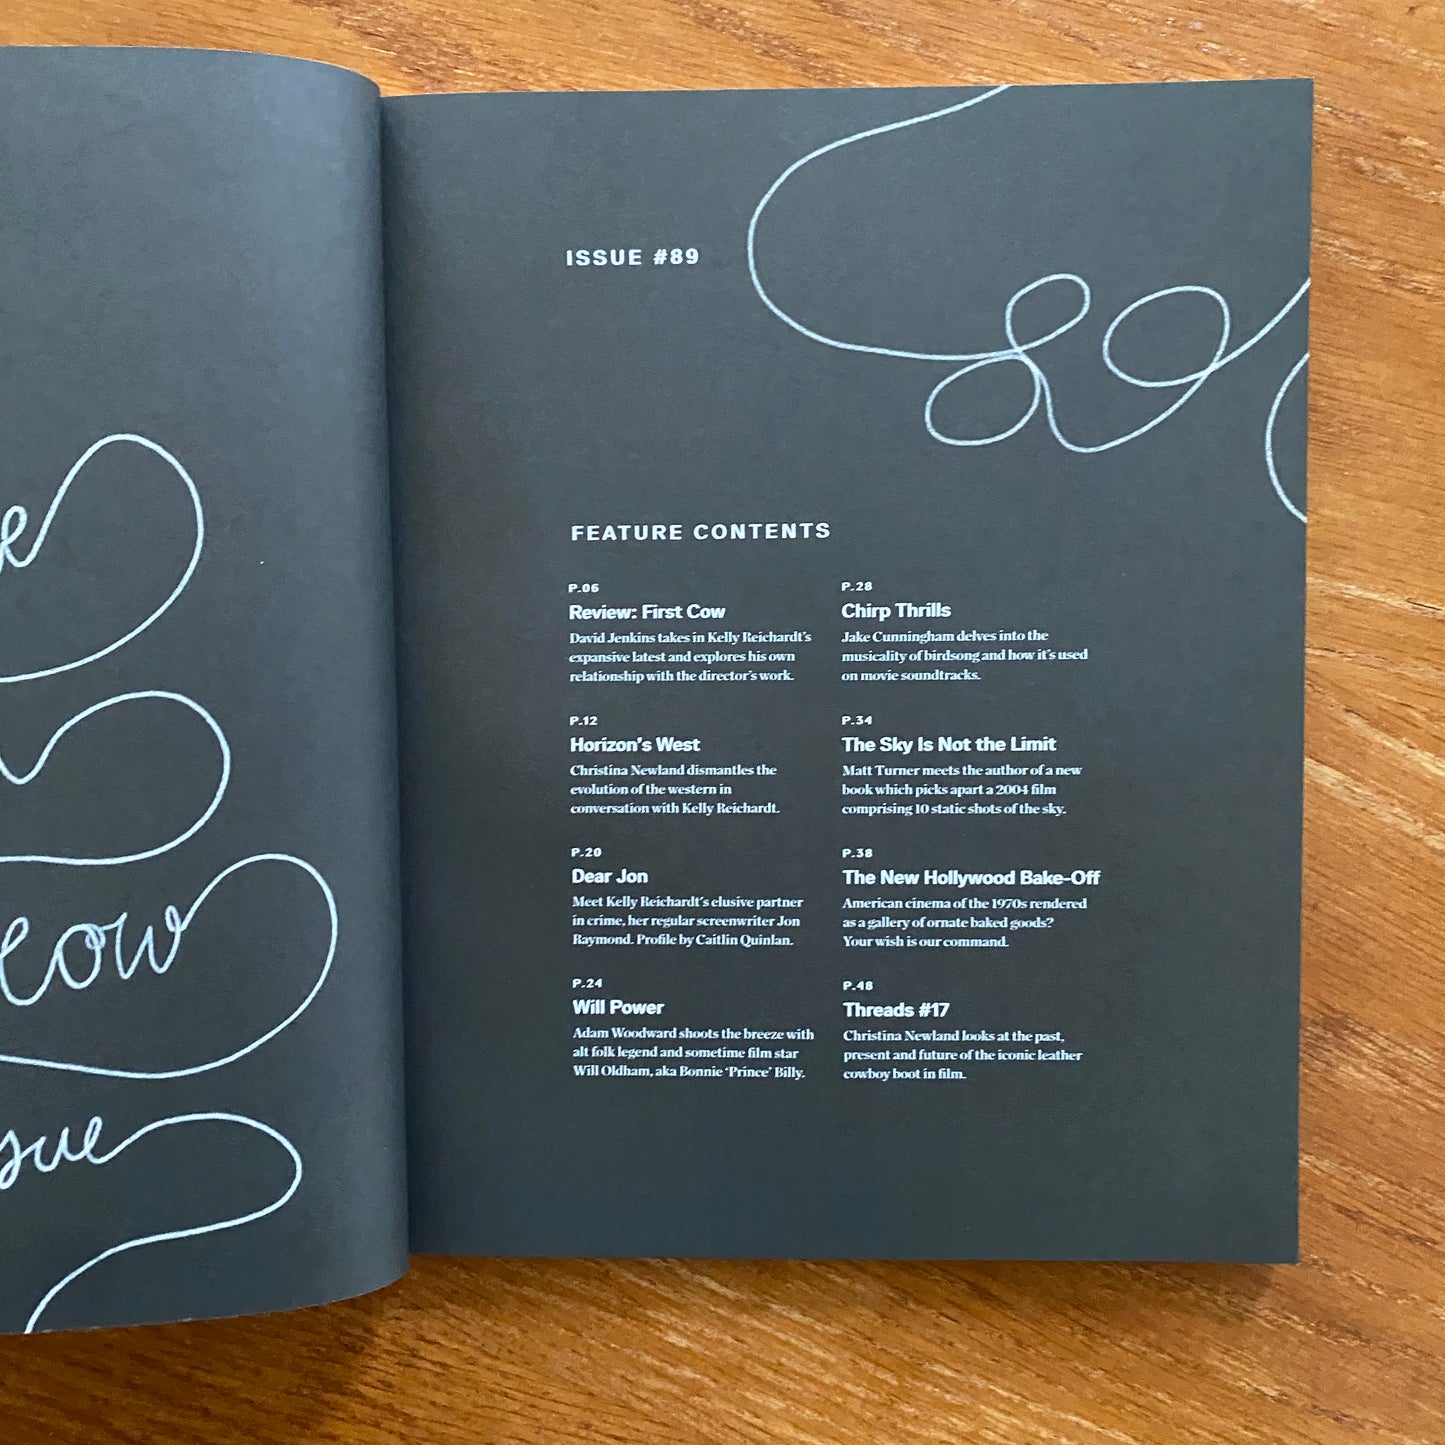 cow
ISSUE #89
89
FEATURE CONTENTS
P.06
Review: First Cow
David Jenkins takes in Kelly Reichardt's
expansive latest and explores his own
relationship with the director's work.
P.12
Horizon's West
Christina Newland dismantles the
evolution of the western in
conversation with Kelly Reichardt.
P.20
Dear Jon
Meet Kelly Reichardt's elusive partner
in crime, her regular screenwriter Jon
Raymond. Profile by Caitlin Quinlan.
P.24
Will Power
Adam Woodward shoots the breeze with
alt folk legend and sometime film star
Will Oldham, aka Bonnie 'Prince' Billy.
P.28
Chirp Thrills
Jake Cunningham delves into the
musicality of birdsong and how it's used
on movie soundtracks.
P.34
The Sky Is Not the Limit
Matt Turner meets the author of a new
book which picks apart a 2004 film
comprising 10 static shots of the sky.
P.38
The New Hollywood Bake-Off
American cinema of the 1970s rendered
as a gallery of ornate baked goods?
Your wish is our command.
P.48
Threads #17
Christina Newland looks at the past,
present and future of the iconic leather
cowboy boot in film.